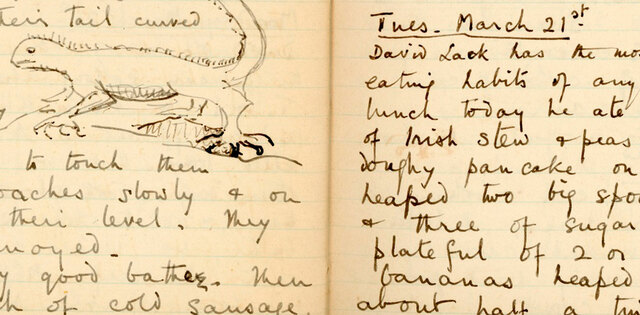 their tail curved
to touch them
oaches slowly & on
their level. They
noyed.
good bathe. Then
of cold sausage.
Tues. March 21st
David Lack has the mos
eating habits of any
lunch today he ate
of Irish stew & peas
doughy pancake on
heaped two big spoo
& three of sugar
plateful of 2 or
bananas heaped
about half a tin